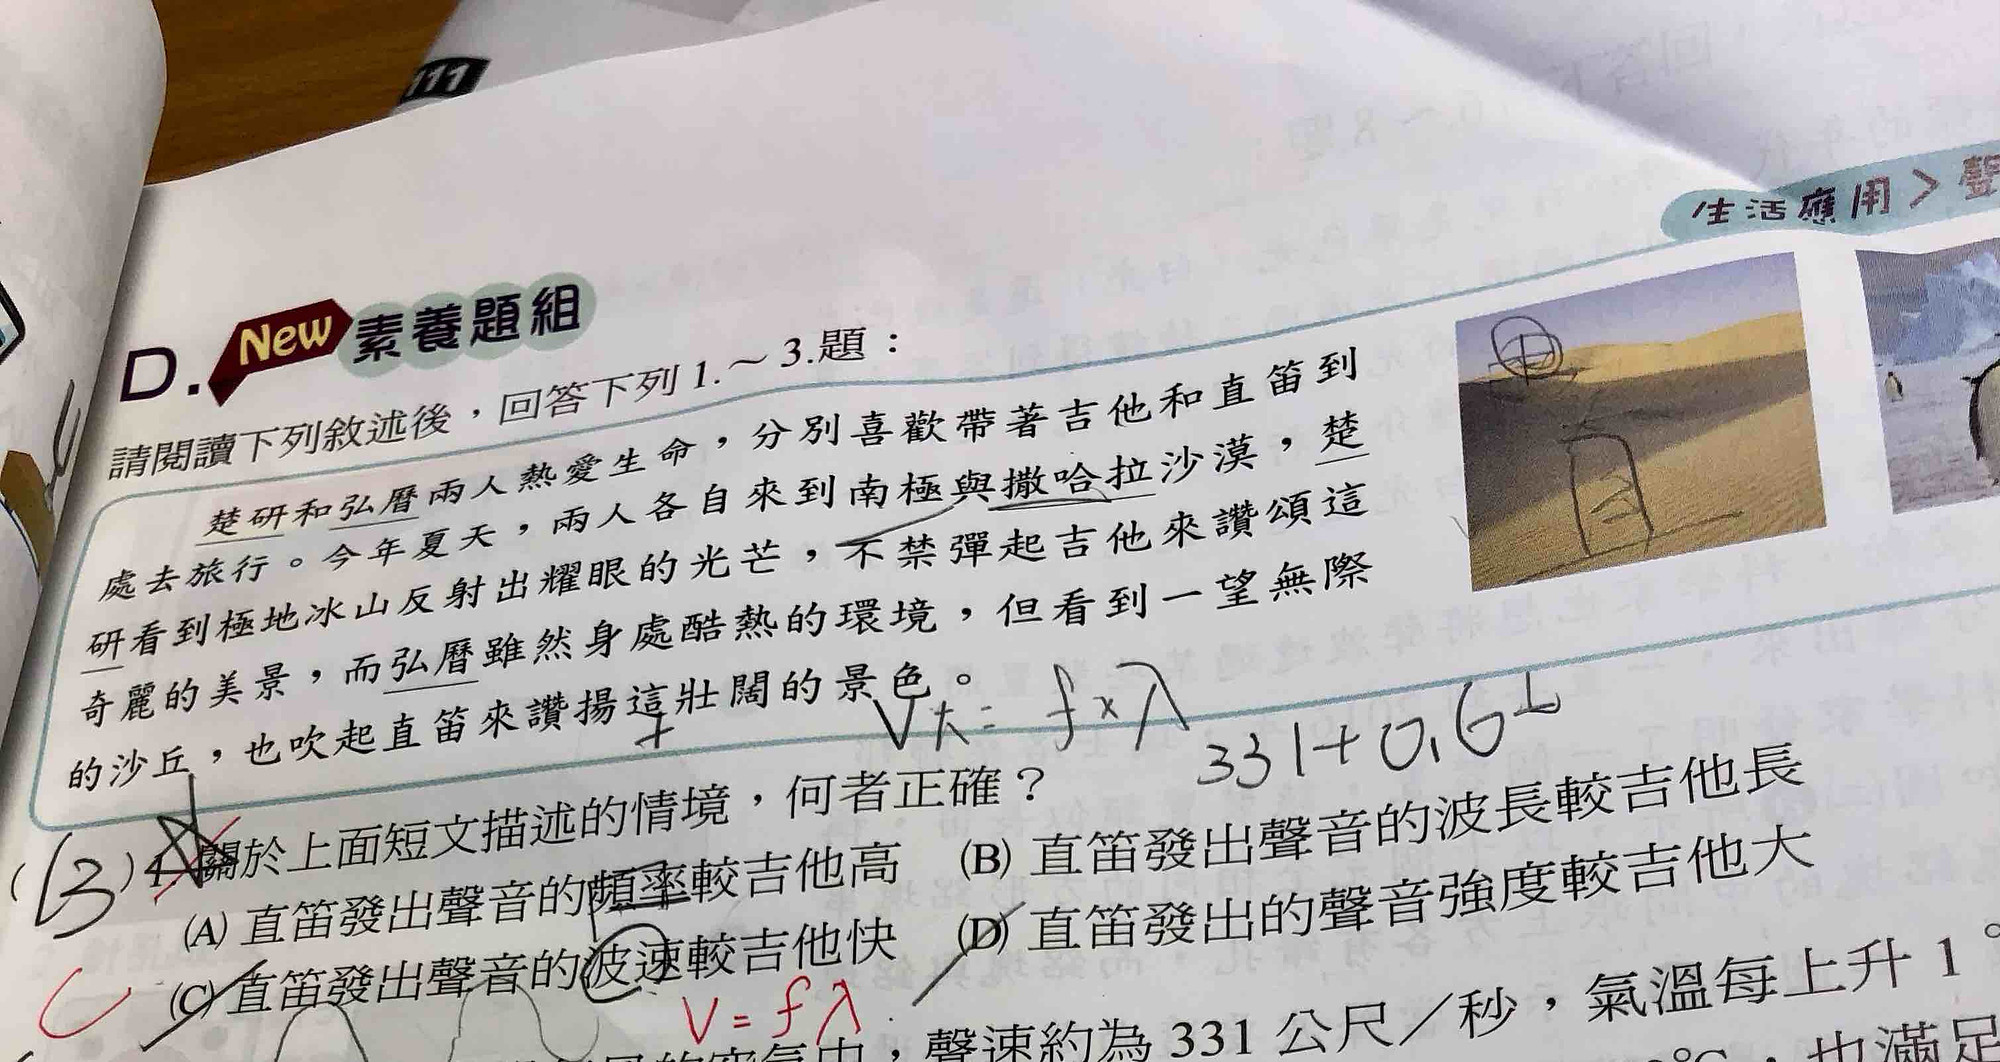 111
生活應用＞聲
D. New 素養題組
請閱讀下列敘述後，回答下列1.～3.題：
楚研和弘曆兩人熱愛生命，分別喜歡帶著吉他和直笛到
處去旅行。今年夏天，兩人各自來到南極與撒哈拉沙漠，楚
研看到極地冰山反射出耀眼的光芒，不禁彈起吉他來讚頌這
奇麗的美景，而弘曆雖然身處酷熱的環境，但看到一望無際
的沙丘，也吹起直笛來讚揚這壯闊的景色。
f×λ
331+0.6t
(B) 1. 關於上面短文描述的情境，何者正確？
(A) 直笛發出聲音的頻率較吉他高 (B) 直笛發出聲音的波長較吉他長
(C) 直笛發出聲音的波速較吉他快 (D) 直笛發出的聲音強度較吉他大
C
V=fλ
，聲速約為 331 公尺／秒，氣溫每上升 1
，也滿足